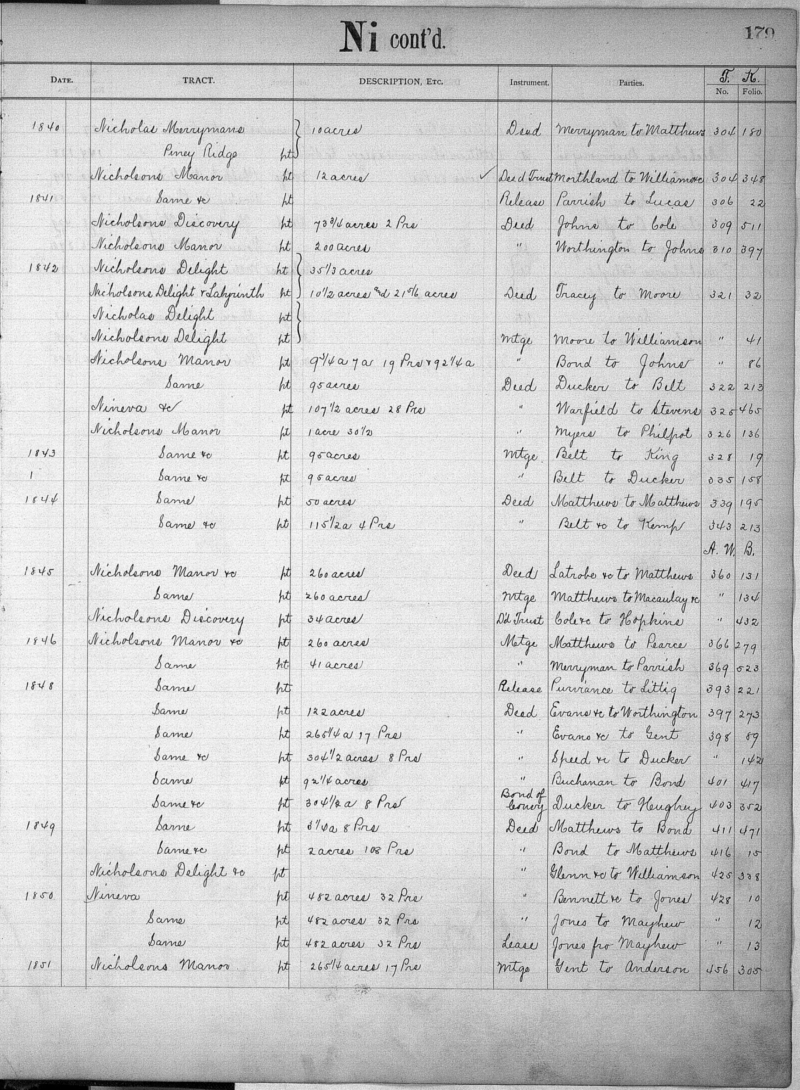 Ni cont'd.
179
DATE. TRACT. DESCRIPTION, ETC. Instrument. Parties. T. K.
No. Folio.
1840 Nicholas Merrymans 10 acres Deed Merryman to Matthews 304 180
Piney Ridge pt
Nicholsons Manor pt 12 acres ✓ Deed Trust Morthland to Williamson 304 348
1841 Same &c pt Release Parrish to Lucas 306 22
Nicholsons Discovery pt 73 3/4 acres 2 Prs Deed Johns to Cole 309 511
Nicholsons Manor pt 200 acres " Worthington to Johns 310 397
1842 Nicholsons Delight pt 35 1/3 acres
Nicholsons Delight & Labyrinth pt 10 1/2 acres and 21 5/6 acres Deed Tracey to Moore 321 32
Nicholas Delight pt
Nicholsons Delight pt Mtge Moore to Williamson " 41
Nicholsons Manor pt 9 1/4 a 7 a 19 Prs & 92 1/4 a " Bond to Johns " 86
Same pt 95 acres Deed Ducker to Belt 322 213
Nineva &c pt 107 1/2 acres 28 Prs " Warfield to Stevens 325 465
Nicholsons Manor pt 1 acre 30 1/2 " Myers to Philpot 326 136
1843 Same &c pt 95 acres Mtge. Belt to King 328 19
1 Same &c pt 95 acres " Belt to Ducker 335 158
1844 Same pt 50 acres Deed Matthews to Matthews 339 195
Same &c pt 115 1/2 a 4 Prs " Belt &c to Kemp 343 213
A. W. B.
1845 Nicholsons Manor &c pt 260 acres Deed Latrobe &c to Matthews 360 131
Same pt 260 acres Mtge Matthews to Macaulay &c " 134
Nicholsons Discovery pt 34 acres D'd Trust Cole &c to Hopkins " 432
1846 Nicholsons Manor &c pt 260 acres Mtge Matthews to Pearce 366 279
Same pt 41 acres " Merryman to Parrish 369 523
1848 Same pt Release Purvrance to Littig 393 221
Same pt 122 acres Deed Evans &c to Worthington 397 273
Same pt 265 1/4 a 17 Prs " Evans &c to Gent 398 89
Same &c pt 304 1/2 acres 8 Prs " Speed &c to Ducker " 142
Same pt 92 1/4 acres " Buchanan to Bond 401 417
Same &c pt 304 1/2 a 8 Prs Bond of Convy Ducker to Hughey 403 352
1849 Same pt 8 Prs Deed Matthews to Bond 411 471
Same &c pt 2 acres 108 Prs " Bond to Matthews 416 15
Nicholsons Delight &c pt " Glenn &c to Williamson 425 338
1850 Nineva pt 482 acres 32 Prs " Bennett &c to Jones 428 10
Same pt 482 acres 32 Prs " Jones to Mayhew " 12
Same pt 482 acres 32 Prs Lease Jones fro Mayhew " 13
1851 Nicholsons Manor pt 265 1/4 acres 17 Prs Mtge Gent to Anderson 456 305